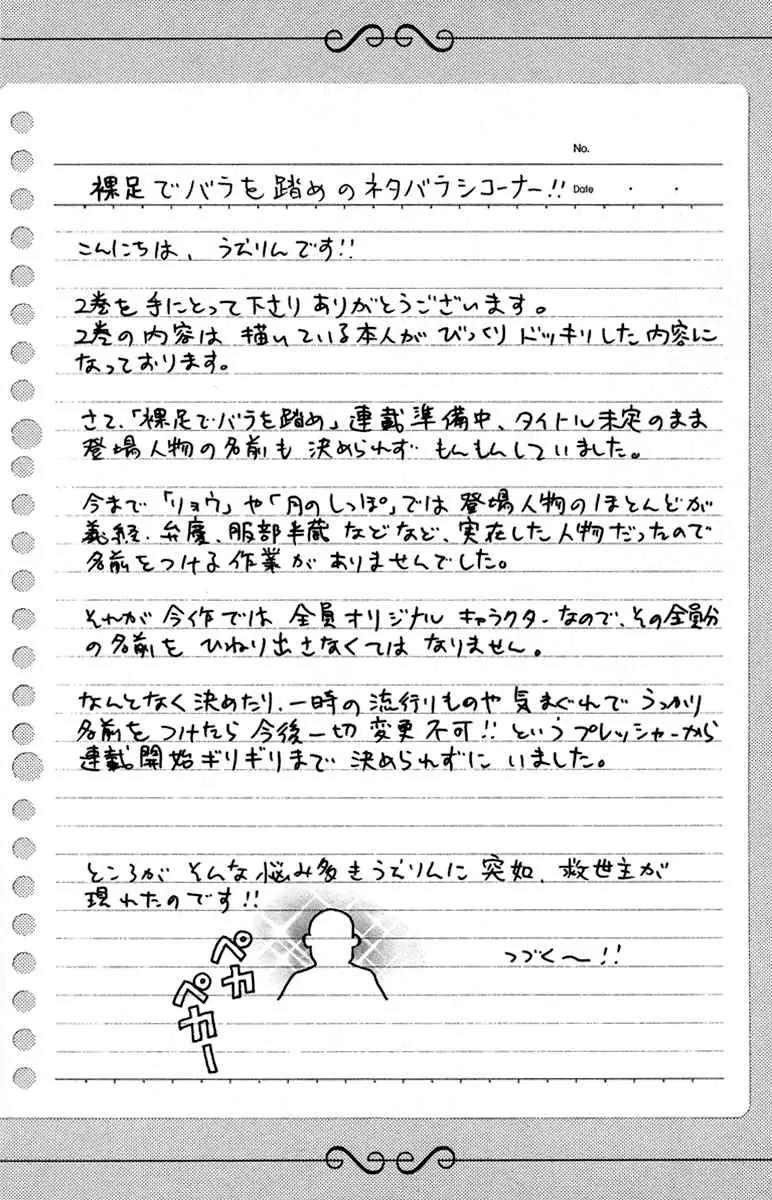 No.
裸足でバラを踏めのネタバラシコーナー!!
Date ・ ・
こんにちは、うえりんです!!
2巻を手にとって下さりありがとうございます。
2巻の内容は描いている本人がびっくりドッキリした内容に
なっております。
さて、「裸足でバラを踏め」連載準備中、タイトル未定のまま
登場人物の名前も決められずもんもんしていました。
今まで「リョウ」や「月のしっぽ」では登場人物のほとんどが
義経、弁慶、服部半蔵などなど、実在した人物だったので
名前をつける作業がありませんでした。
それが今作では全員オリジナルキャラクターなので、その全員分
の名前をひねり出さなくてはなりません。
なんとなく決めたり、一時の流行りものや気まぐれでうっかり
名前をつけたら今後一切変更不可!!というプレッシャーから
連載開始ギリギリまで決められずにいました。
ところがそんな悩み多きうえりんに突如、救世主が
現れたのです!!
ペカ
ペカー
つづく〜!!